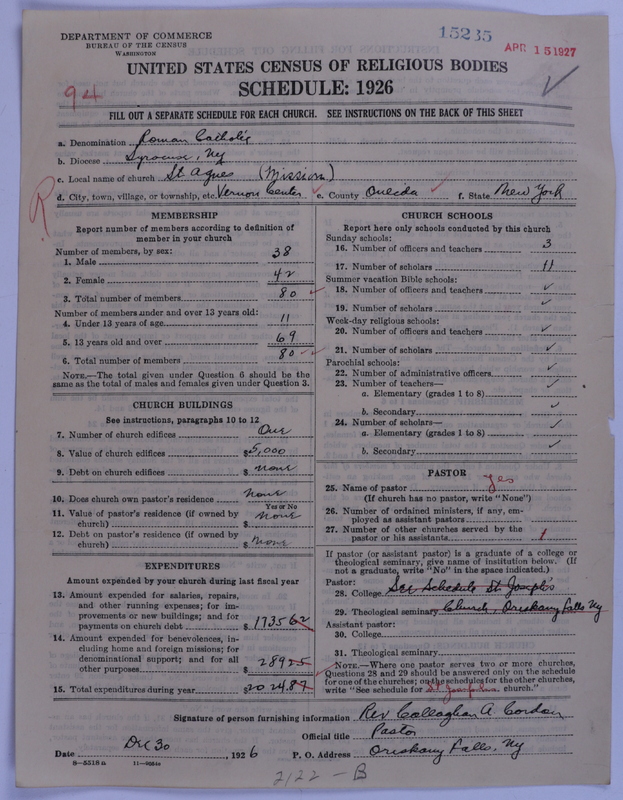 DEPARTMENT OF COMMERCE
BUREAU OF THE CENSUS
WASHINGTON
15235
APR 15 1927
UNITED STATES CENSUS OF RELIGIOUS BODIES
SCHEDULE: 1926
94
FILL OUT A SEPARATE SCHEDULE FOR EACH CHURCH. SEE INSTRUCTIONS ON THE BACK OF THIS SHEET
a. Denomination Roman Catholic
b. Diocese Syracuse, Ny
c. Local name of church St Agnes (Mission)
d. City, town, village, or township, etc. Vernon Center e. County Oneida f. State New York
R
MEMBERSHIP
Report number of members according to definition of
member in your church
Number of members, by sex:
1. Male 38
2. Female 42
3. Total number of members 80
Number of members under and over 13 years old:
4. Under 13 years of age 11
5. 13 years old and over 69
6. Total number of members 80
NOTE.—The total given under Question 6 should be
same as the total of males and females given under Question 3.
CHURCH BUILDINGS
See instructions, paragraphs 10 to 12
7. Number of church edifices One
8. Value of church edifices $5,000
9. Debt on church edifices $ none
10. Does church own pastor's residence none
Yes or No
11. Value of pastor's residence (if owned by
church) $ none
12. Debt on pastor's residence (if owned by
church) $ none
EXPENDITURES
Amount expended by your church during last fiscal year
13. Amount expended for salaries, repairs,
and other running expenses; for im-
provements or new buildings; and for
payments on church debt $ 1735 62
14. Amount expended for benevolences, in-
cluding home and foreign missions; for
denominational support; and for all
other purposes $ 289 25
15. Total expenditures during year $2024.87
CHURCH SCHOOLS
Report here only schools conducted by this church
Sunday schools:
16. Number of officers and teachers 3
17. Number of scholars 11
Summer vacation Bible schools:
18. Number of officers and teachers
19. Number of scholars
Week-day religious schools:
20. Number of officers and teachers
21. Number of scholars
Parochial schools:
22. Number of administrative officers
23. Number of teachers—
a. Elementary (grades 1 to 8)
b. Secondary
24. Number of scholars—
a. Elementary (grades 1 to 8)
b. Secondary
PASTOR
25. Name of pastor yes
(If church has no pastor, write "None")
26. Number of ordained ministers, if any, em-
ployed as assistant pastors
27. Number of other churches served by the
pastor or his assistants 1
If pastor (or assistant pastor) is a graduate of a college or
theological seminary, give name of institution below. (If
not a graduate, write "No" in the space indicated.)
Pastor:
28. College See Schedule St Joseph's
29. Theological seminary Church, Oriskany Falls Ny
Assistant pastor:
30. College
31. Theological seminary
NOTE.—Where one pastor serves two or more churches,
Questions 28 and 29 should be answered only on the schedule
for one of the churches; on the schedules for the other churches,
write "See schedule for St Josephs church."
Signature of person furnishing information Rev Callaghan A. Cordon
Official title Pastor
Date Dec 30, 1926 P. O. Address Oriskany Falls, Ny
2122-B